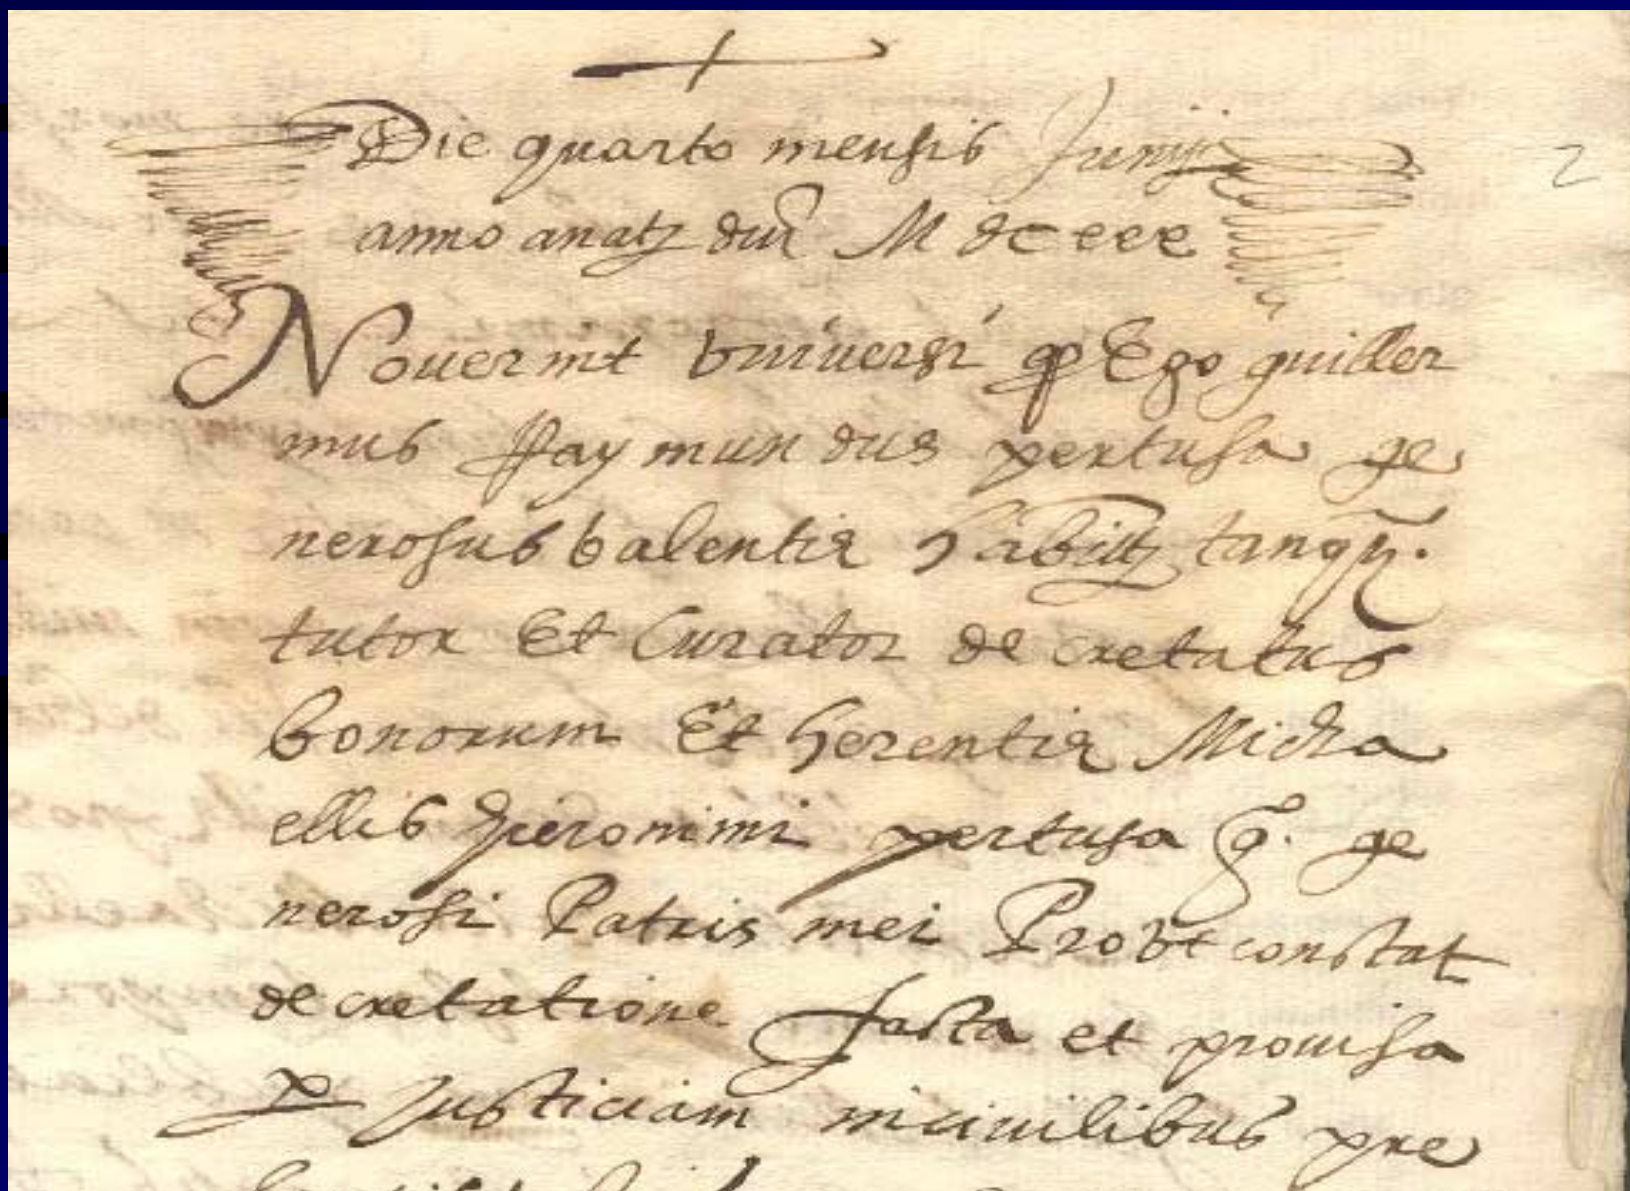 2
Die quarto mensis Junij
anno a natz dni M dc eee
Nouerint vniuersi qp Ego guiller
mus Raymundus pertusa ge
nerosus valentiæ habitz tanqz.
tutor Et Curator decretatus
bonorum Et herentiæ Micha
ellis hieronimi pertusa q. ge
nerosi Patris mei Prout constat
decretatione facta et prouisa
p Justiciam in ciuilibus pre